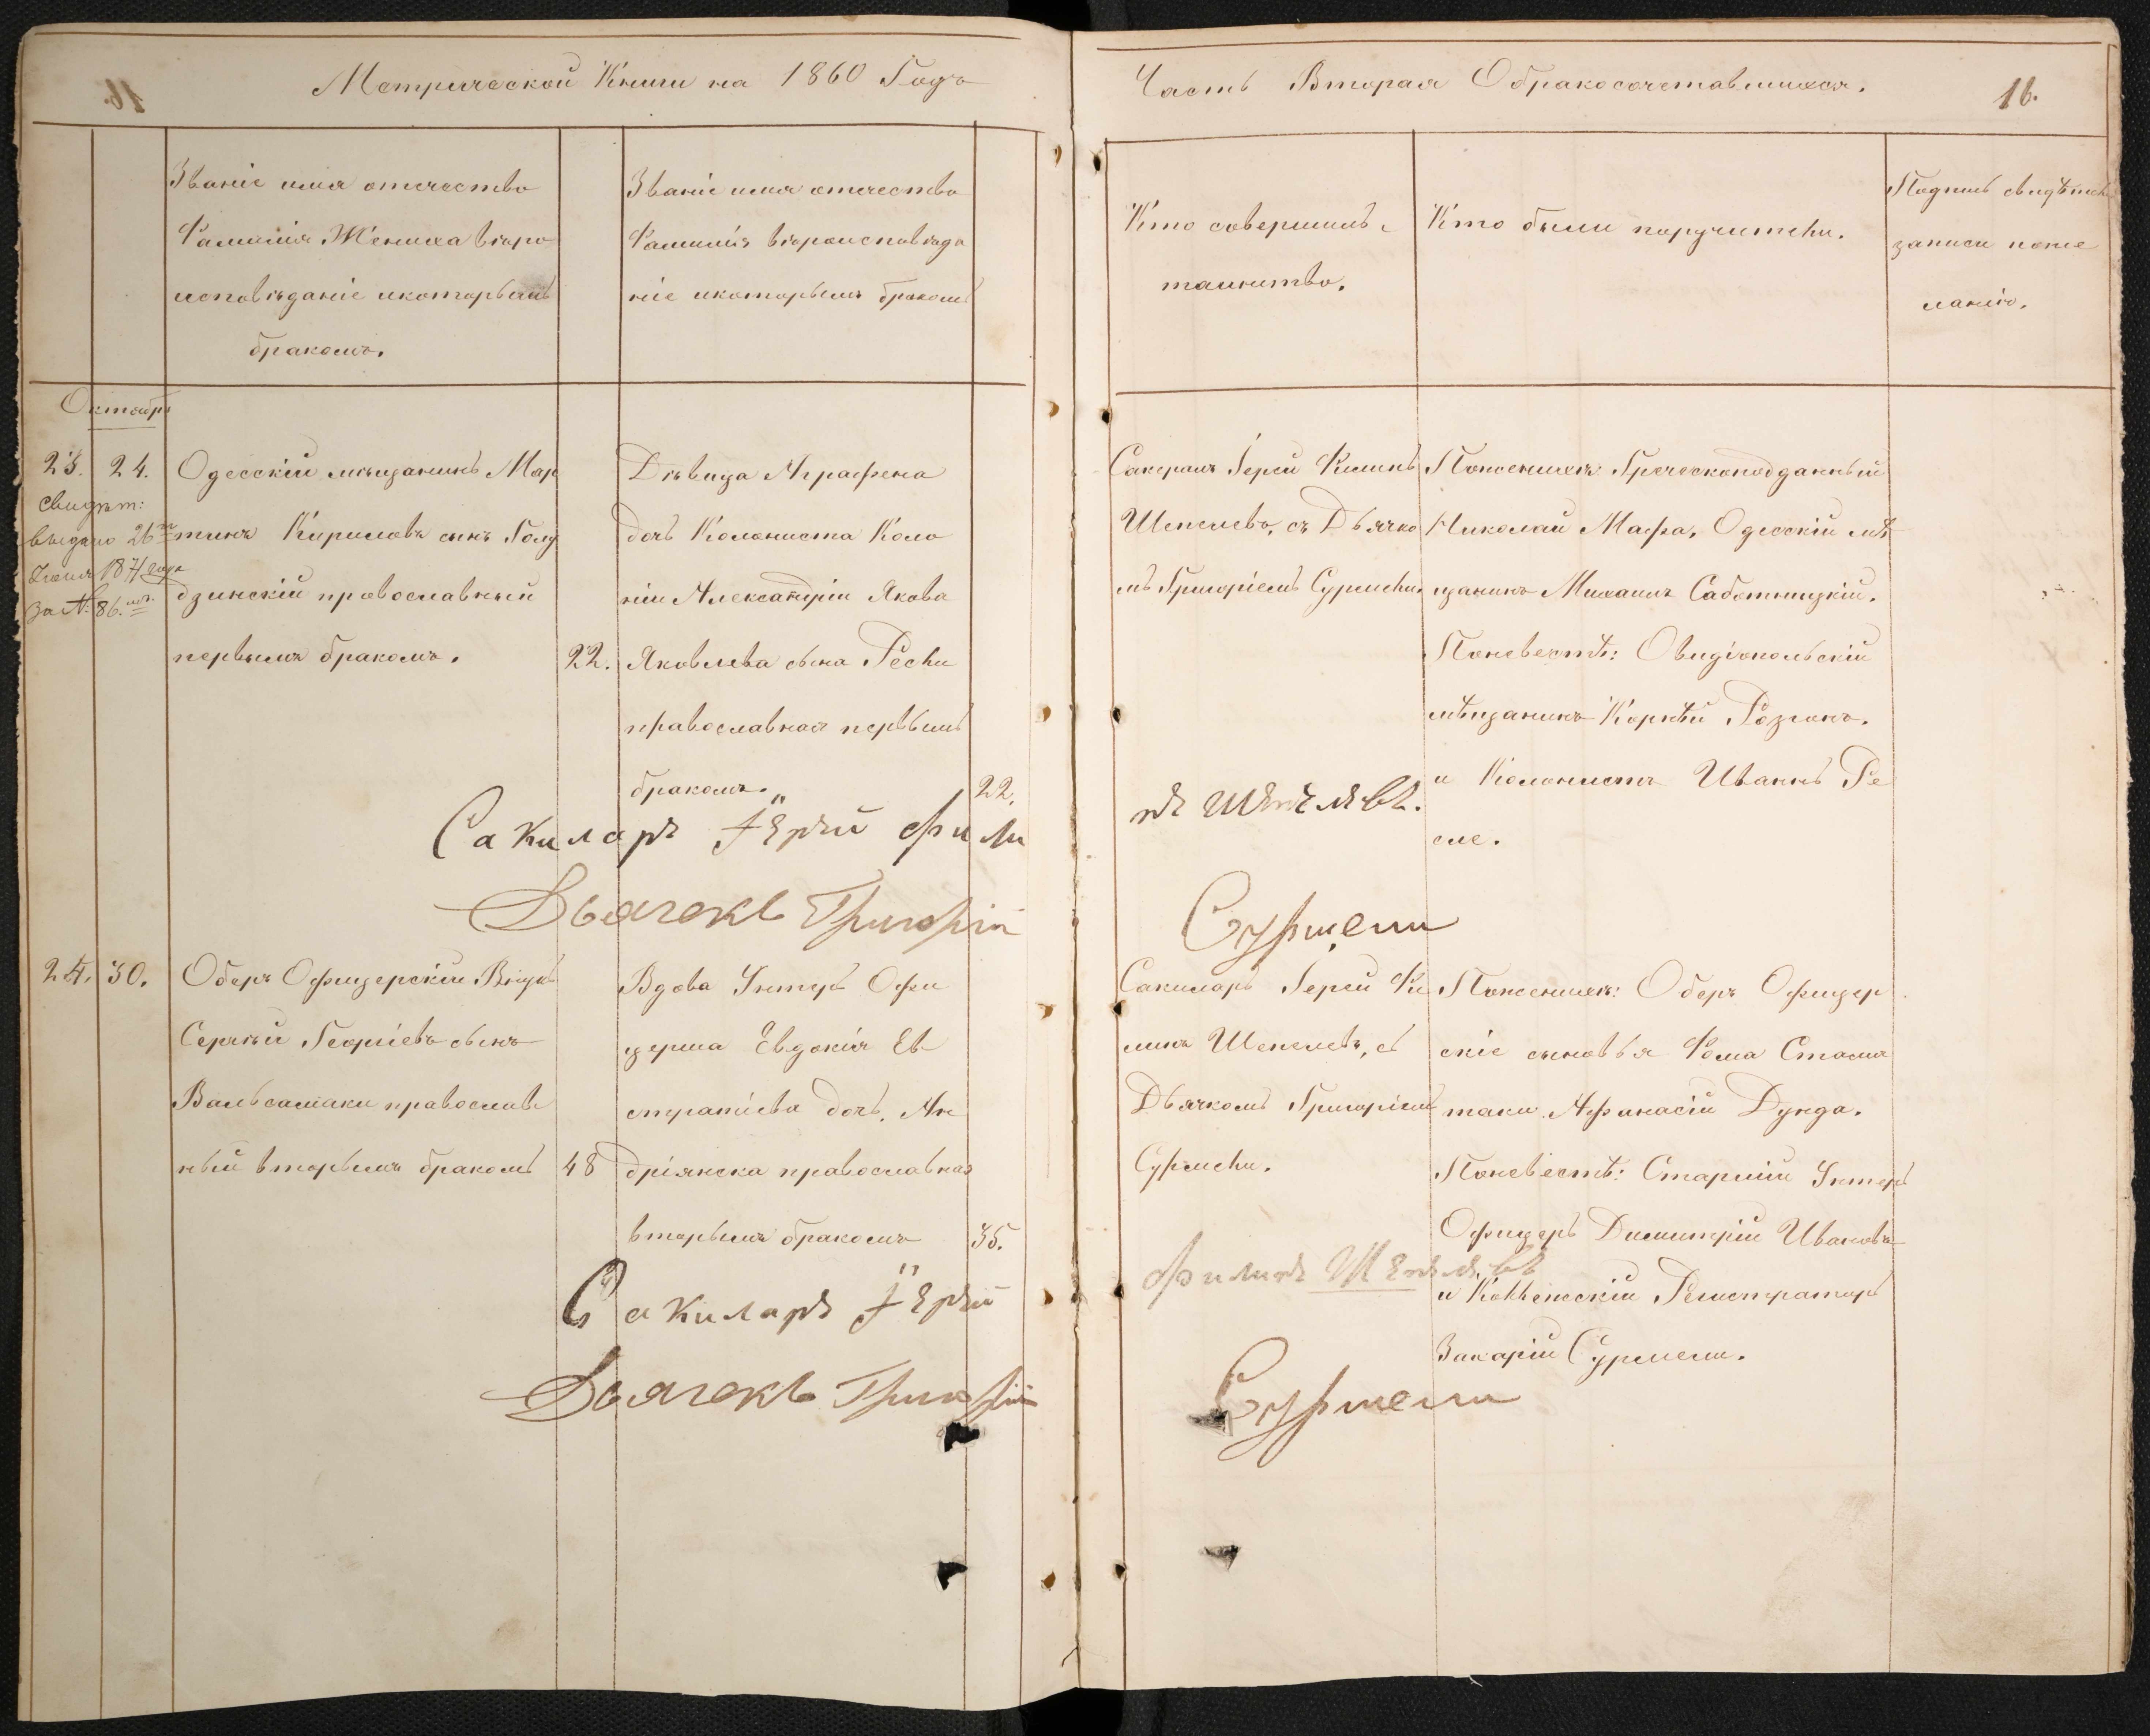 Метрической Книги на 1860 Годъ
Часть Вторая О бракосочетавшихся.
16.
Званіе имя отечество
Фамилія Жениха вѣро
исповѣданіе икоторымъ
бракомъ.
Званіе имя отечество
Фамилія вѣроисповѣда
ніе икоторымъ бракомъ
Кто совершилъ
таинство.
Кто были поручители.
Подпись свидѣтел
записи поже
ланію.
Октябрь
23. 24.
свидѣт:
выдано 26го
Іюня 1871 года
за № 86.
Одесскій мѣщанинъ Мар
тинъ Кириловъ сынъ Голу
дзинскій православный
первымъ бракомъ.
22.
Дѣвица Аграфена
дочь Колониста Коло
ніи Александріи Якова
Яковлева сына Ресли
православная первымъ
бракомъ.
22.
Сакеларъ Іерей Филипъ
Шепелевъ, съ Дьячко
мъ Григоріемъ Сурмели.
Поженихѣ: Греческоподданный
Николай Мафа, Одесскій мѣ
щанинъ Михаилъ Саботницкій.
Поневестѣ: Овидіопольскій
мѣщанинъ Корнѣй Розганъ.
и Колонистъ Иванъ Ре
сле.
Сакиларъ Іерей Фили
пъ Шепелевъ.
Дьячекъ Григорій
Сурмели
24. 30.
Оберъ Офицерскій Вдовъ
Сергѣй Георгіевъ сынъ
Вальсамаки православ
ный вторымъ бракомъ
48
Вдова Унтеръ Офи
церша Евдокія Ев
стратіева дочь. Ан
дріянска православная
вторымъ бракомъ
35.
Сакиларъ Іерей Фи
липъ Шепелевъ, съ
Дьячкомъ Григоріемъ
Сурмели.
Поженихѣ: Оберъ Офицер
скіе сыновья Фома Стама
таки Афанасій Дунда.
Поневестѣ: Старшій Унтеръ
Офицеръ Димитрій Ивановъ
и Коллежскій Регистраторъ
Захарій Сурмели.
Сакиларъ Іерей
Филипъ Шепелевъ
Дьячекъ Григорій
Сурмели